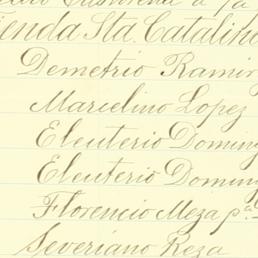 enda Sta. Catalin
Demetrio Ramir
Marcelino Lopez
Eleuterio Doming
Eleuterio Doming
Florencio Meza pa.
Severiano Reza